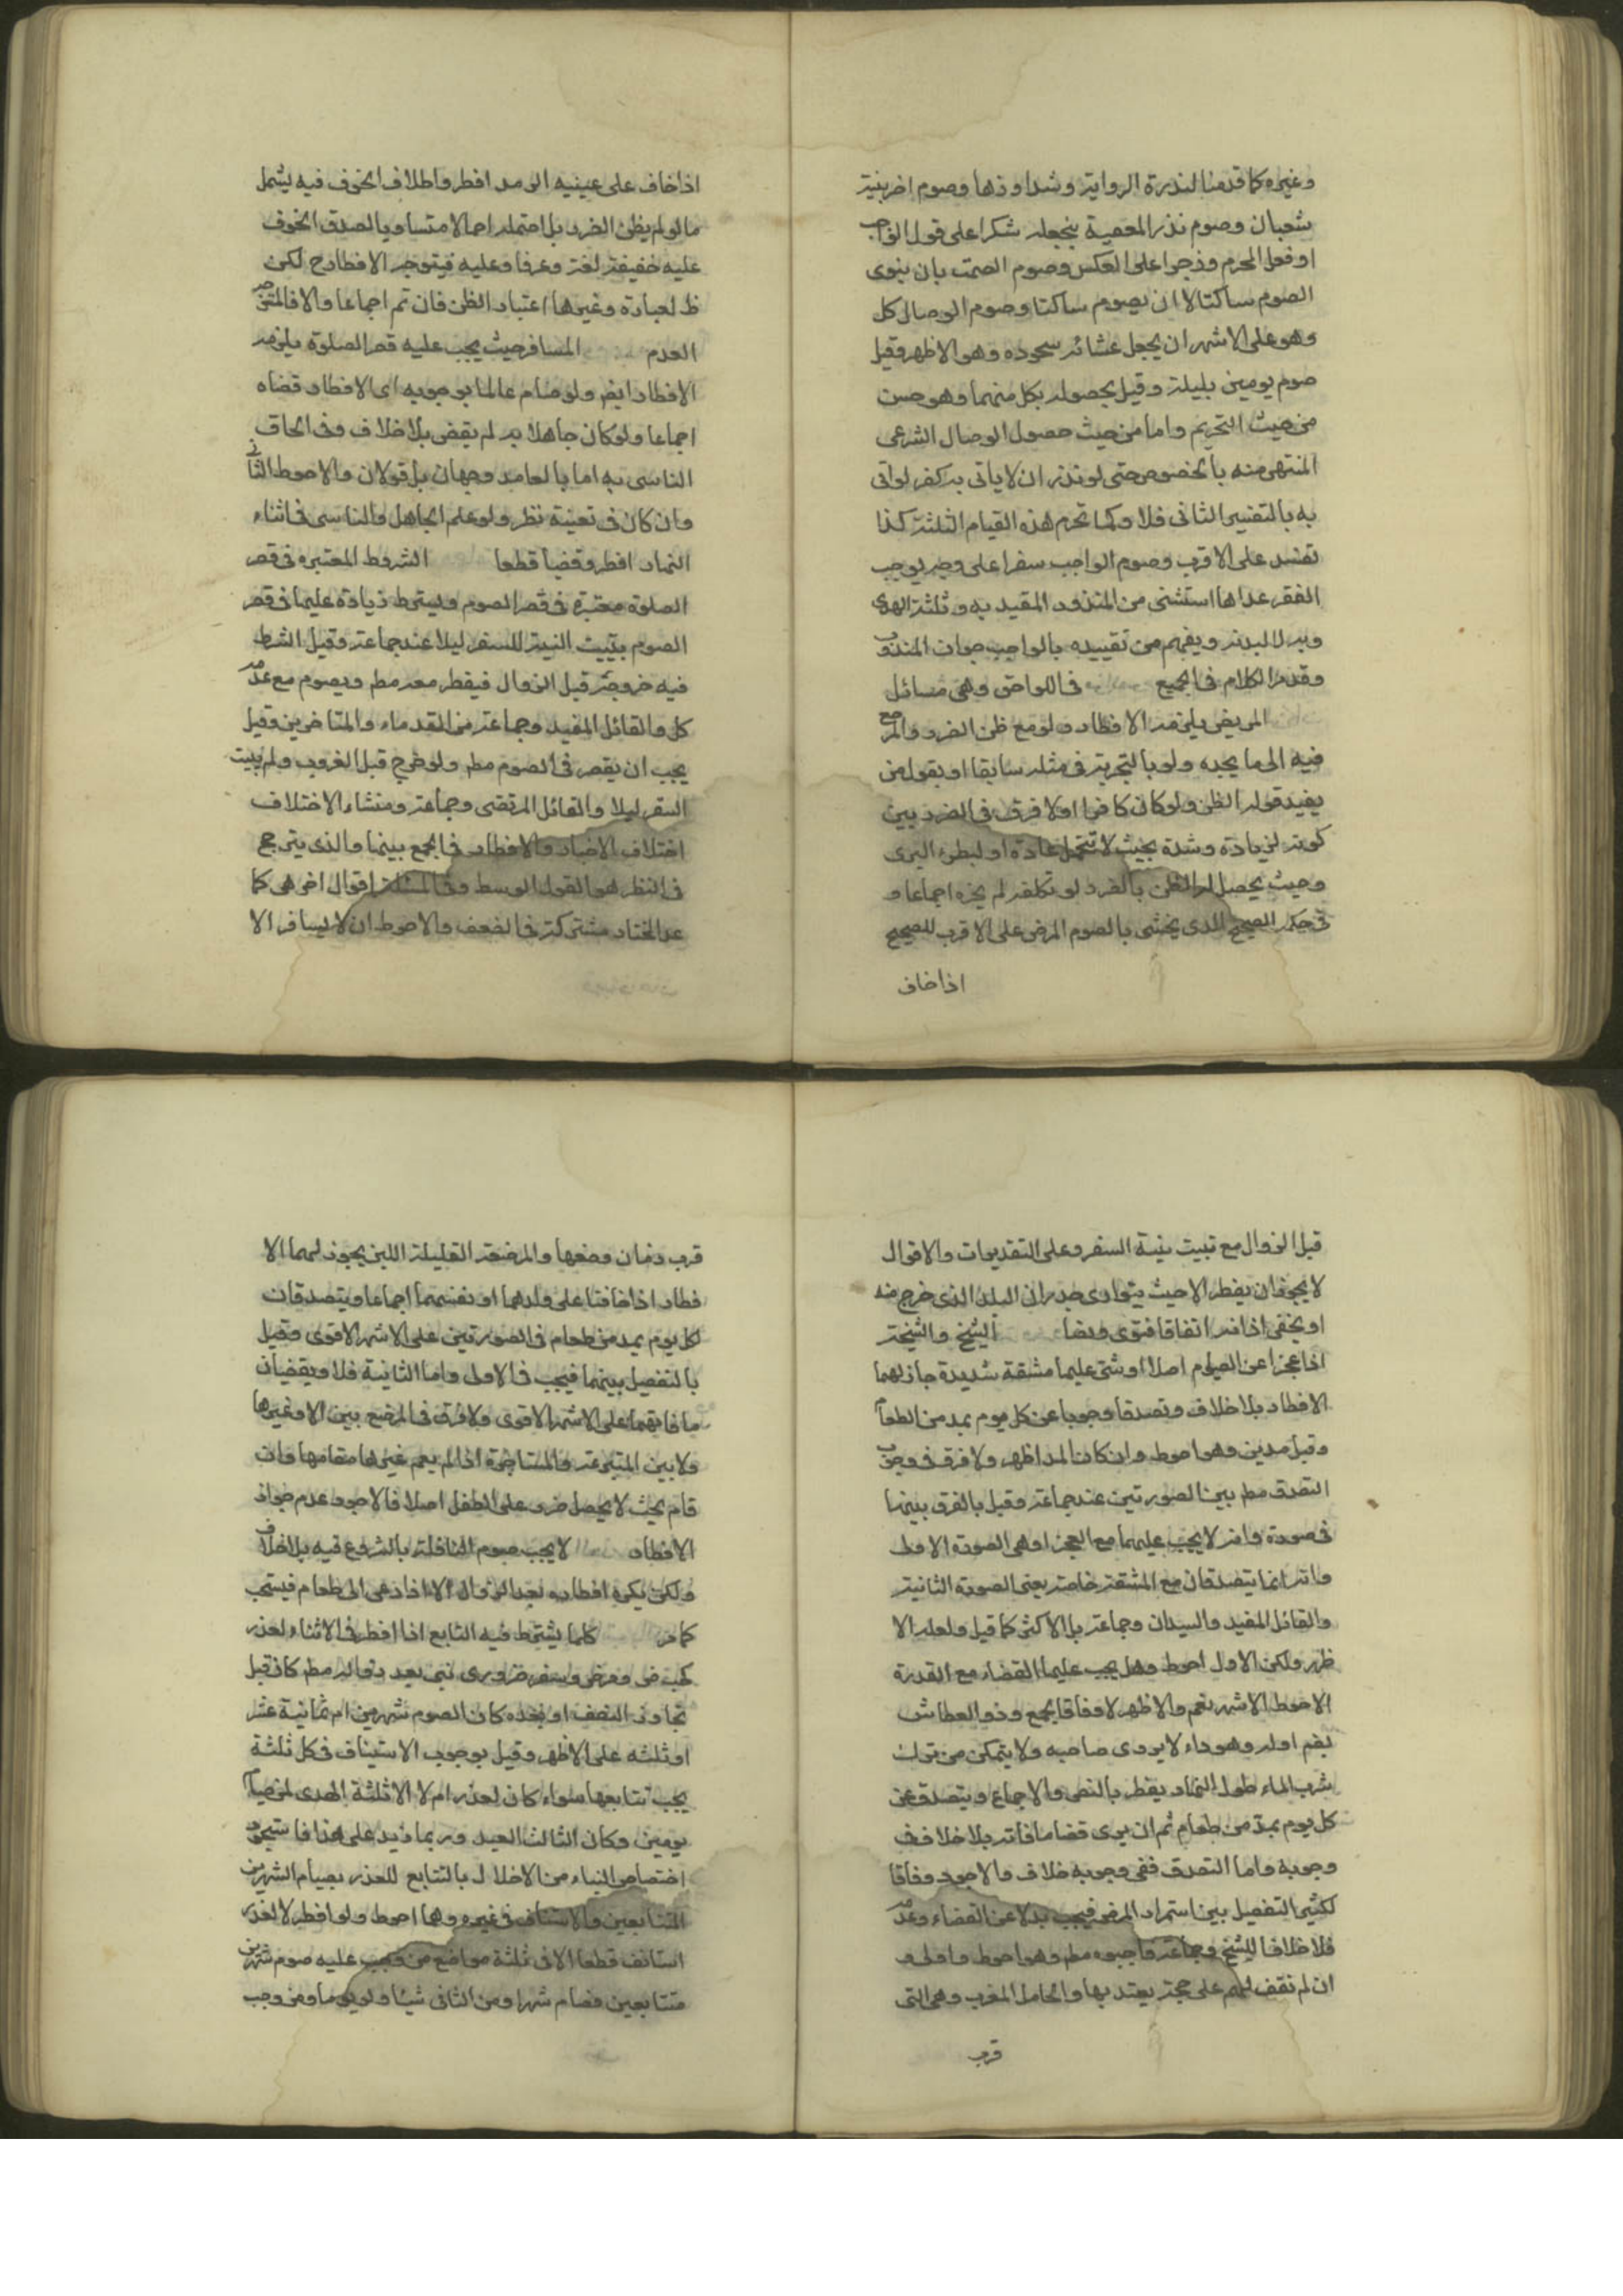 وغيره كما قدمنا لندرة الرواية وشذاوذها وصوم اخر بنية
شعبان وصوم نذر المعصية بجعله شكرا على قول الواجب
او فعل المحرم وزجرا على العكس وصوم الصمت بان ينوى
الصوم ساكتا لا ان يصوم ساكتا وصوم الوصال كل
وهو على الاشهر ان يجعل عشائه سحوره وهو الاظهر وقيل
صوم يومين بليلة وقيل بحصوله بكل منهما وهو حسن
من حيث التحريم واما من حيث حصول الوصال الشرعى
المنتهى منه بالخصوص حتى لو نذر ان لا ياتى به كفر لو اتى
به بالتفسير الثانى فلا وكما تحرم هذه القيام الثلثة كذا
تفسد على الاقرب وصوم الواجب سفرا على وجه يوجب
القصر عدا ما استثنى من المنذور المقيد به وثلثة الهدى
وبدل البدنة ويفهم من تقييده بالواجب جواز المندوب
وقد مر الكلام فى الجميع فى اللواحق وهى مسائل
المريض يلزمه الافطار ولو مع ظن الضرر والمرجع
فيه الى ما يجده ولو بالتجربة فى مثله سابقا او بقول من
يفيد قوله الظن ولو كان كافرا ولا فرق فى الضرر بين
كونه لزيادة وشدة بحيث لا تتحمل عادة او لبطوء البرى
وحيث يحصل له الظن بالضرر لو تكلفه لم يجزه اجماعا و
فى حكمه الصحيح الذى يخشى بالصوم المرض على الاقرب للصحيح
اذا خاف
اذا خاف على عينيه الرمد افطر واطلاق الخوف فيه يشمل
ما لو لم يظن الضرر بل احتمله احمالا متساويا لصدق الخوف
عليه حقيقة لغة وعرفا وعليه فيتوجه الافطار ح لكن
ظ لعبارة وغيرها اعتبار الظن فان تم اجماعا والا فالمتجه
العدم المسافر حيث يجب عليه قصر الصلوة يلزمه
الافطار ايض ولو صام عالما بوجوبه اى الافطار قضاه
اجماعا ولو كان جاهلا به لم يقض بلا خلاف وفى الحاق
الناسى به اما بالعامد وجهان بل قولان والاحوط الثانى
وان كان فى تعينه نظر ولو علم الجاهل والناسى فى اثناء
النهار افطر وقضيا قطعا الشروط المعتبره فى قصر
الصلوة معتبرة فى قصر الصوم ويشترط زيادة عليها فى قصر
الصوم تبييت النية للسفر ليلا عند جماعة وقيل الشرط
فيه خروجه قبل الزوال فيفطر معه مطم ويصوم مع عدمه
كل والقائل المفيد وجماعة من القدماء والمتاخرين وقيل
يجب ان يقصر فى الصوم مطم ولو خرج قبل الغروب ولم يبيت
السفر ليلا والقائل المرتضى وجماعة ومنشاء الاختلاف
اختلاف الاخبار والانظار فى الجمع بينها والذى يترجح
فى النظر هو القول الوسط وفى المسئلة اقوال اخر هى كما
عدا المختار مشتركة فى الضعف والاحوط ان لا يسافر الا
قبل الزوال مع تبييت نية السفر وعلى التقديرات والاقوال
لا يجوز ان يفطر الا حيث يتوارى جدران البلد الذى خرج منه
او يخفى اذانه اتفاقا فتوى ونصا الشيخ والشيخة
اذا عجزا عن الصيام اصلا او شق عليهما مشقة شديدة جاز لهما
الافطار بلا خلاف وتصدقا وجوبا عن كل يوم بمد من الطعام
وقيل مدين وهو احوط وان كان المد اظهر ولا فرق فى وجوب
التصدق مطم بين الصورتين عند جماعة وقيل بالفرق بينهما
فى صورة وانه لا يجب عليهما مع العجز اوهى الصورة الاولى
وانه انما يتصدقان مع المشقة خاصة يعنى الصورة الثانية
والقائل المفيد والسيدان وجماعة بل الاكثر كما قيل ولعله الا
ظهر ولكن الاول احوط وهل يجب عليهما القضاء مع القدرة
الاحوط الاشهر نعم والاظهر لا وفاقا لجمع وذو العطاش
بضم اوله وهو داء لا يروى صاحبه ولا يتمكن من ترك
شرب الماء طول النهار يفطر بالنص والاجماع ويتصدق عن
كل يوم بمد من طعام ثم ان برى قضا ما فاته بلا خلاف فى
وجوبه واما التصدق ففى وجوبه خلاف والاجود وفاقا
لكثير التفصيل بين استمرار المرض فيجب بدلا عن القضاء وعدمه
فلا خلافا للشيخ وجماعة فاوجبوه مطم وهو احوط واولى و
ان لم نقف لهم على حجة يعتد بها والحامل المقرب وهى التى
قرب
قرب زمان وضعها والمرضعة القليلة اللبن يجوز لهما الا
فطار اذا خافتا على ولدهما او نفسهما اجماعا ويتصدقان
لكل يوم بمد من طعام فى الصورتين على الاشهر الاقوى وقيل
بالتفصيل بينهما فيجب فى الاولى واما الثانية فلا ويقضيان
ما فاتهما على الاشهر الاقوى ولا فرق فى المرضع بين الام وغيرها
ولا بين المتبرعة والمستاجرة اذا لم يقم غيرها مقامها وان
قام بحيث لا يحصل ضرر على الطفل اصلا فالاجود عدم جواز
الافطار لا يجب صوم النافلة بالشروع فيه بلا خلاف
ولكن يكره افطاره بعد الزوال الا اذا دعى الى طعام فيستحب
كما مر كلما يشترط فيه التتابع اذا افطر فى الاثناء لعذر
كحيض ومرض وسفر ضرورى بنى بعد زواله مطم كان قبل
تجاوز النصف او بعده كان الصوم شهرين ام ثمانية عشر
او ثلثه على الاظهر وقيل بوجوب الاستيناف فى كل ثلثة
يجب تتابعها سواء كان لعذر ام لا الا ثلثة الهدى لمن صام
يومين وكان الثالث العيد وربما زيد على هذا فاستجود
اختصاص البناء مع الاخلال بالتتابع للعذر بصيام الشهرين
المتتابعين والاستيناف فى غيره وهما احوط ولو افطر لا لعذر
استانف قطعا الا فى ثلثة مواضع من وجب عليه صوم شهرين
متتابعين فصام شهرا ومن الثانى شيئا ولو يوما ومن وجب